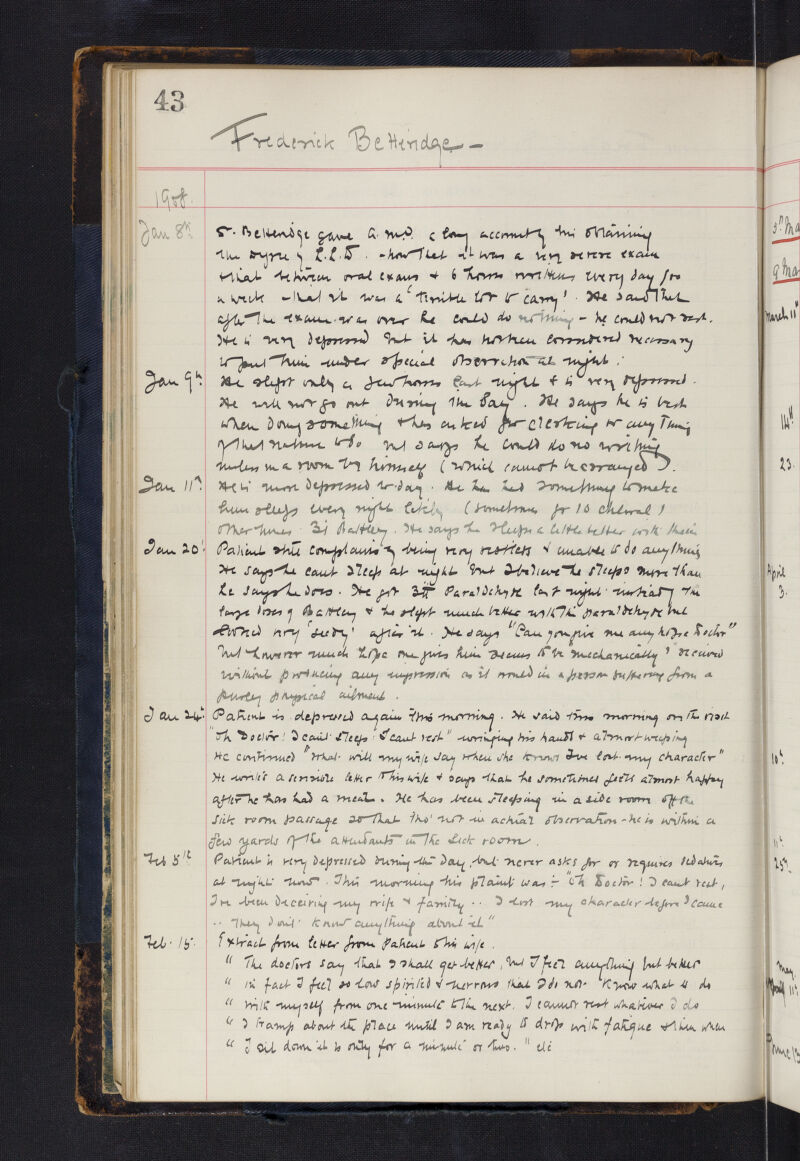 43
Frederick Betteridge -
1908.
Jan 8th Dr. Betteridge gave a. m.o. a long account of his obtaining
the degree of L.L.D. - how that it was a very severe exam
that between oral exams & 6 hours written every day for
a week - that it was a 'terrible lot to carry'. He said that
after the exam was over he could do nothing - he could not rest.
He is very depressed but it has not been considered necessary
to put him under special observation at night.
Jan 9th He slept only a few hours last night & is very depressed.
He will not go out during the day. He says he is best
when doing something & has asked for clerking or anything
of that nature to do but says he could do no writing
unless in a room by himself (which cannot be arranged).
Jan 11th He is more depressed to-day. He has had something to make
him sleep every night lately (sometimes gr 10 chloral)
other times Battley. He says he sleeps a little better with them
Jan 20 Patient still complains of being very restless & unable to do anything
He says he can't sleep at night but I believe he sleeps more than
he says he does. He got Paraldehyde last night instead of the
large doses of Battley & he slept much better with the paraldehyde but
looked very 'seedy' after it. He says "Can you give me any hope Doctor"
but however much hope one gives him seems to be 'mechanically' received
without producing any impression as it would in a person suffering from a
purely physical ailment.
Jan 24th Patient is depressed again this morning. He said this morning on the visit
"Oh Doctor! I can't sleep I can't rest" wringing his hands & almost weeping
He continued "What will my wife say when she knows I've lost my character"
He wrote a sensible letter to his wife & says that he sometimes feels almost happy
after he has had a meal. He has been sleeping in a side room off the
sick room passage so that tho' not in actual observation - he is within a
few yards of the attendants in the sick room.
Feb 5th Patient is very depressed during the day, but never asks for or requires sedatives
at night now. This morning his plaint was :- "Oh Doctor! I can't rest,
I've been deceiving my wife & family .. I lost my character before I came
.. They don't know anything about it"
Feb. 15. Extract from letter from patient to his wife.
" The doctors say that I shall get better, but I feel anything but better
" in fact I feel so low spirited & nervous that I do not know what to do
" with myself from one minute to the next. I cannot rest whatever I do
" I tramp about the place until I am ready to drop with fatigue & then when
" I sit down it is only for a minute or two." etc
3rd Ma
9 Ma
March 11th
14th
23.
April
3.
10th
25th
May
11th
June 13